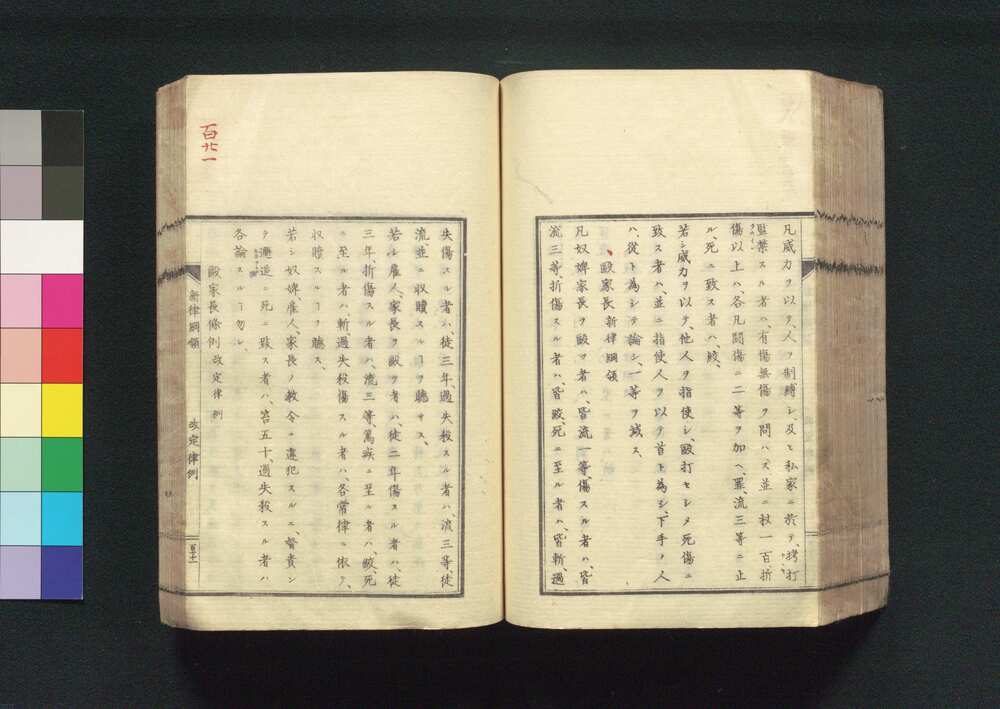 凡威力ヲ以テ、人ヲ制縛シ、及ヒ私家ニ於テ、拷打
監禁スル者ハ、有傷無傷ヲ問ハス、並ニ杖一百、折
傷以上ハ、各凡闘傷ニ二等ヲ加ヘ、罪、流三等ニ止
ル、死ニ致ス者ハ、絞、
若シ威力ヲ以テ、他人ヲ指使シ、毆打セシメ死傷ニ
致ス者ハ、並ニ指使人ヲ以テ首ト為シ、下手ノ人
ハ、従ト為シテ論シ、一等ヲ減ス、
毆家長新律綱領
凡奴婢家長ヲ毆ツ者ハ、皆流一等、傷スル者ハ、皆
流三等、折傷スル者ハ、皆絞、死ニ至ル者ハ、皆斬、過
失傷スル者ハ、徒三年、過失殺スル者ハ、流三等、徒
流、並ニ収贖スルヿヲ聴サス、
若シ雇人、家長ヲ毆ツ者ハ、徒二年、傷スル者ハ、徒
三年、折傷スル者ハ、流三等、篤疾ニ至ル者ハ、絞、死
ニ至ル者ハ、斬、過失殺傷スル者ハ、各常律ニ依テ、
収贖スルヿヲ聴ス、
若シ奴婢、雇人、家長ノ教令ニ違犯スルニ、督責シ
テ邂逅ニ死ニ致ス者ハ、笞五十、過失殺スル者ハ
各論スルヿ勿レ、
毆家長條例改定律例
新律綱領 改定律例
百廿一